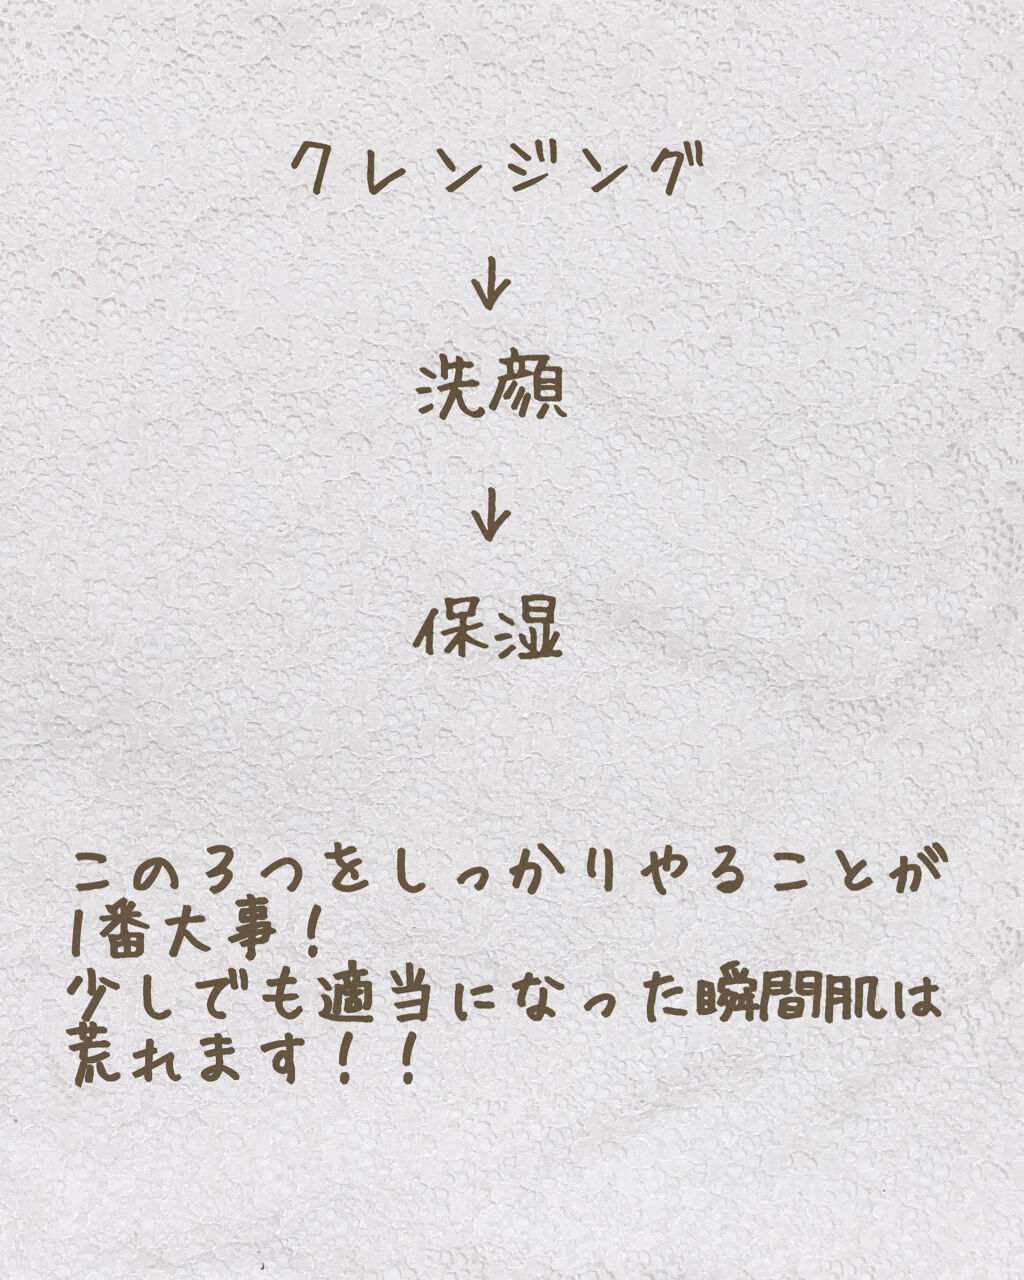 クレンジング
↓
洗顔
↓
保湿
この3つをしっかりやることが
1番大事！
少しでも適当になった瞬間肌は
荒れます！！